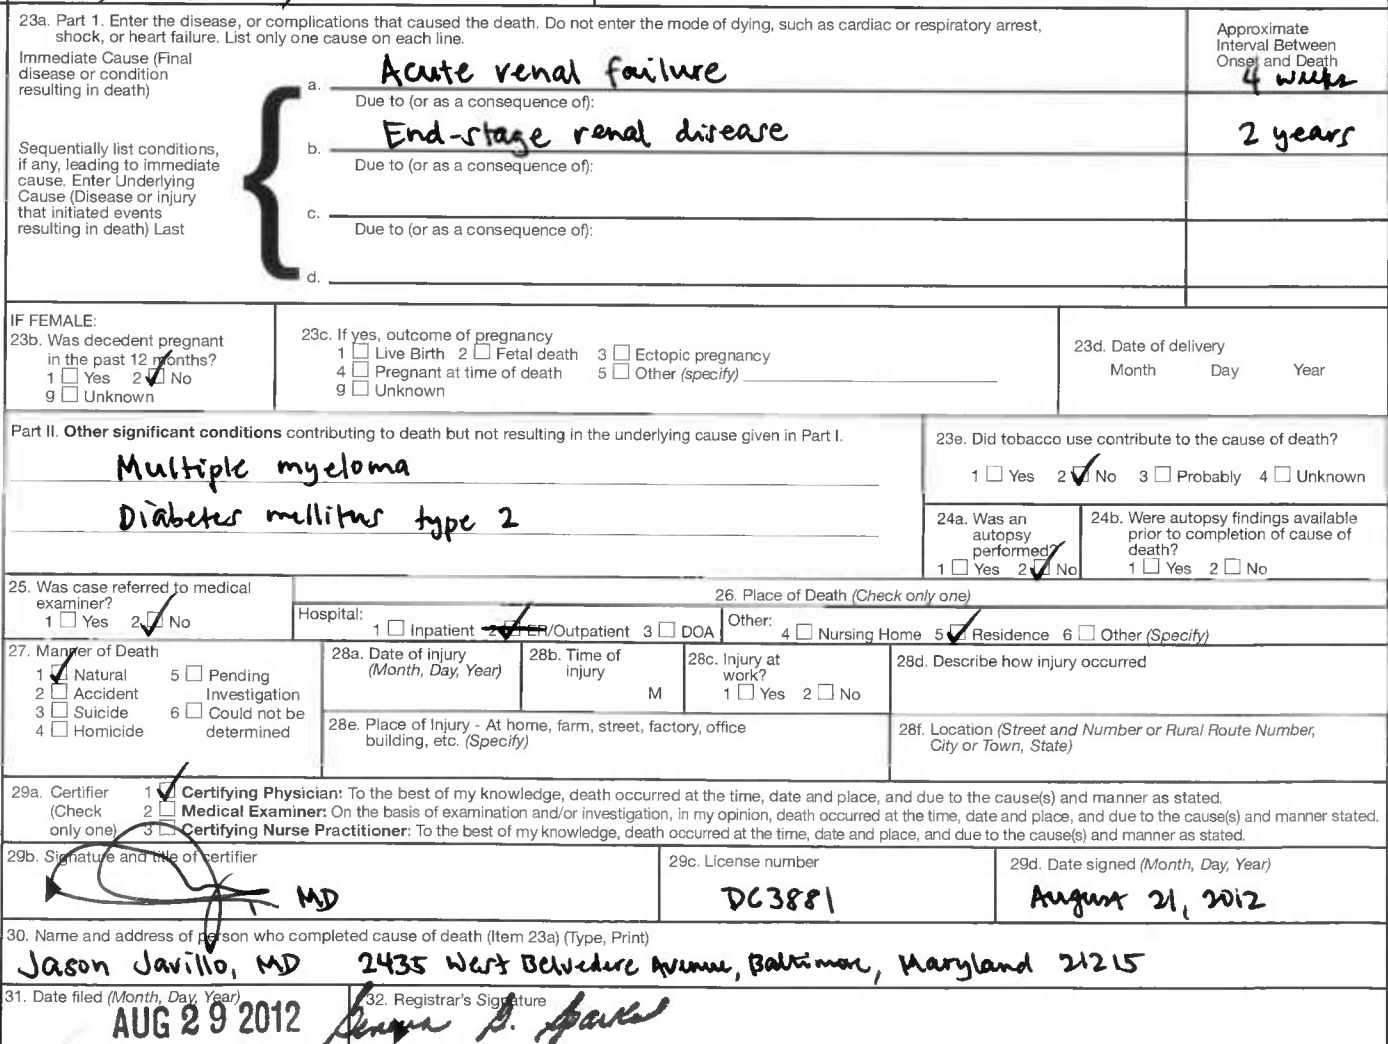 23a. Part 1. Enter the disease, or complications that caused the death. Do not enter the mode of dying, such as cardiac or respiratory arrest,
shock, or heart failure. List only one cause on each line.
Approximate
Interval Between
Onset and Death
Immediate Cause (Final
disease or condition
resulting in death)
a. Acute renal failure 4 weeks
Due to (or as a consequence of):
b. End-stage renal disease 2 years
Due to (or as a consequence of):
Sequentially list conditions,
if any, leading to immediate
cause. Enter Underlying
Cause (Disease or injury
that initiated events
resulting in death) Last
c.
Due to (or as a consequence of):
d.
IF FEMALE:
23b. Was decedent pregnant
in the past 12 months?
1 Yes 2 No
9 Unknown
23c. If yes, outcome of pregnancy
1 Live Birth 2 Fetal death 3 Ectopic pregnancy
4 Pregnant at time of death 5 Other (specify)
9 Unknown
23d. Date of delivery
Month Day Year
Part II. Other significant conditions contributing to death but not resulting in the underlying cause given in Part I.
Multiple myeloma
Diabetes mellitus type 2
23e. Did tobacco use contribute to the cause of death?
1 Yes 2 No 3 Probably 4 Unknown
24a. Was an
autopsy
performed?
1 Yes 2 No
24b. Were autopsy findings available
prior to completion of cause of
death?
1 Yes 2 No
25. Was case referred to medical
examiner?
1 Yes 2 No
26. Place of Death (Check only one)
Hospital: 1 Inpatient 2 ER/Outpatient 3 DOA
Other: 4 Nursing Home 5 Residence 6 Other (Specify)
27. Manner of Death
1 Natural 5 Pending
2 Accident Investigation
3 Suicide 6 Could not be
4 Homicide determined
28a. Date of injury
(Month, Day, Year)
28b. Time of
injury
M
28c. Injury at
work?
1 Yes 2 No
28d. Describe how injury occurred
28e. Place of Injury - At home, farm, street, factory, office
building, etc. (Specify)
28f. Location (Street and Number or Rural Route Number,
City or Town, State)
29a. Certifier
(Check
only one)
1 Certifying Physician: To the best of my knowledge, death occurred at the time, date and place, and due to the cause(s) and manner as stated.
2 Medical Examiner: On the basis of examination and/or investigation, in my opinion, death occurred at the time, date and place, and due to the cause(s) and manner stated.
3 Certifying Nurse Practitioner: To the best of my knowledge, death occurred at the time, date and place, and due to the cause(s) and manner as stated.
29b. Signature and title of certifier
MD
29c. License number
DC3881
29d. Date signed (Month, Day, Year)
August 21, 2012
30. Name and address of person who completed cause of death (Item 23a) (Type, Print)
Jason Javillo, MD 2435 West Belvedere Avenue, Baltimore, Maryland 21215
31. Date filed (Month, Day, Year)
AUG 29 2012
32. Registrar's Signature